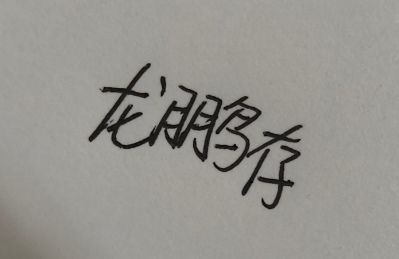 龙鹏存